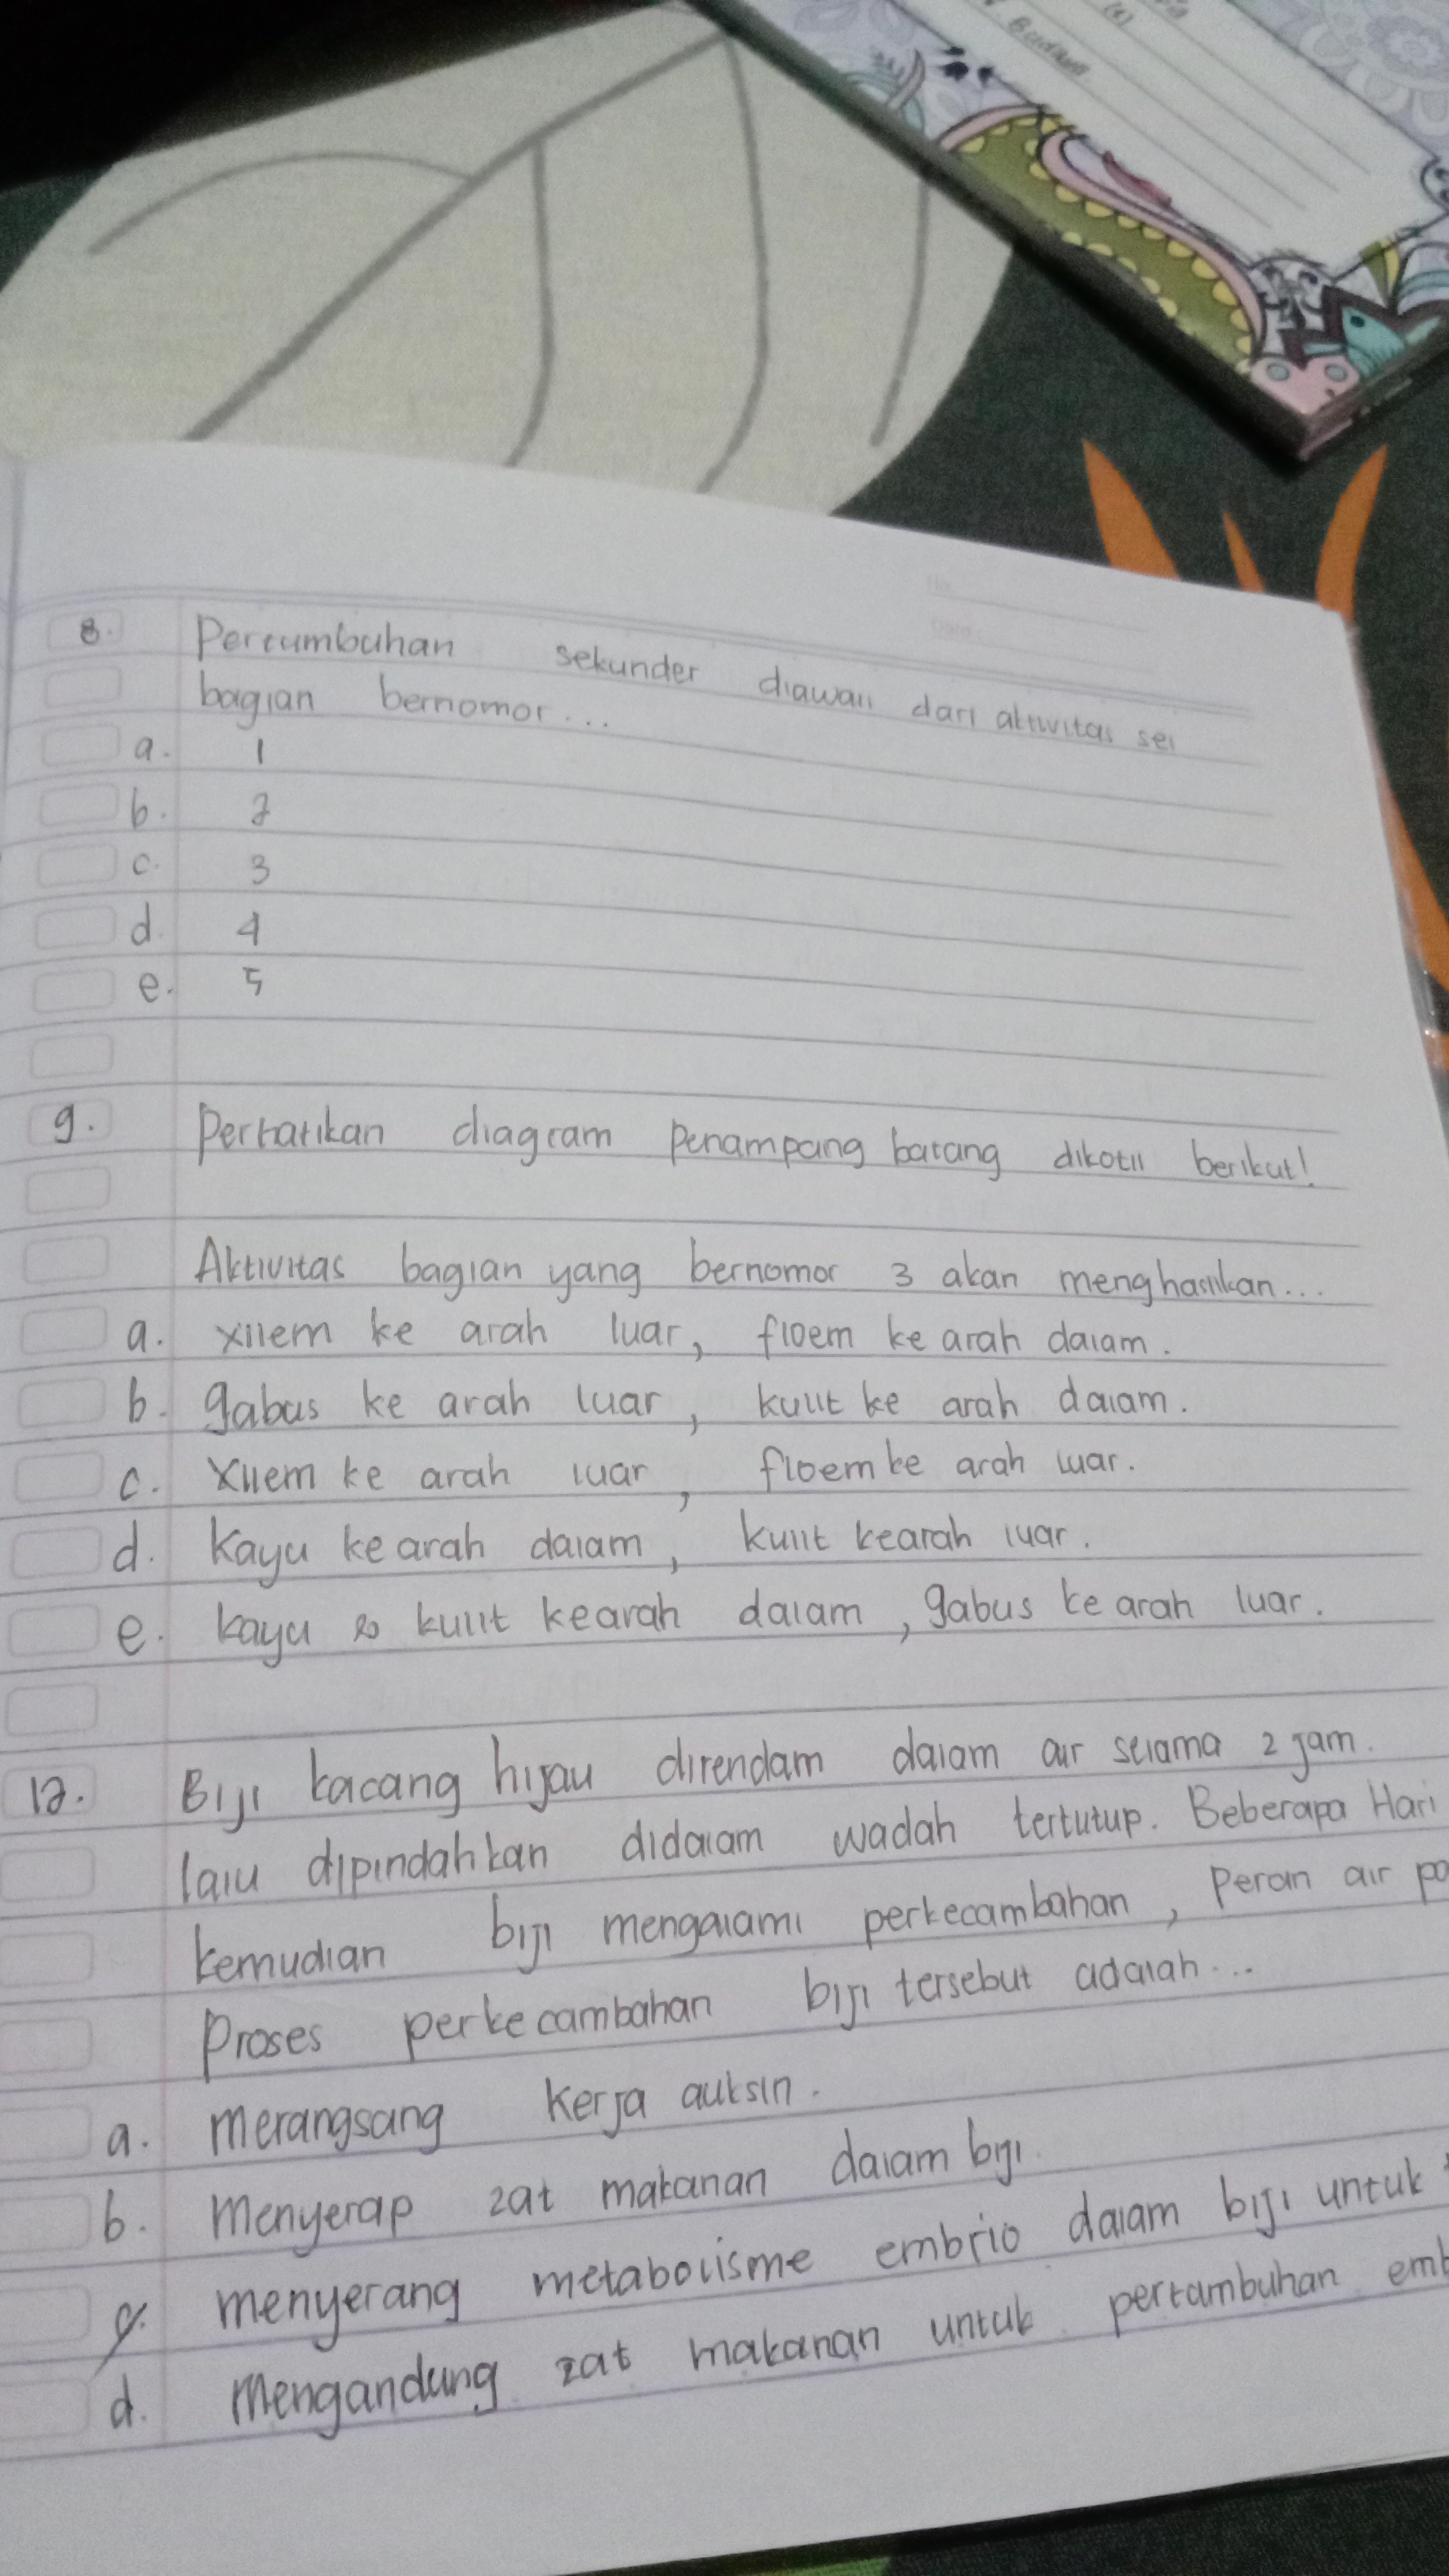 (1)
Budaya
8. Pertumbuhan sekunder diawali dari aktivitas sel
bagian bernomor...
a. 1
b. 2
c. 3
d. 4
e. 5
9. Perhatikan diagram Penampang batang dikotil berikut!
Aktivitas bagian yang bernomor 3 akan menghasilkan...
a. xilem ke arah luar, floem ke arah dalam.
b. gabus ke arah luar, kulit ke arah dalam.
c. xilem ke arah luar, floem ke arah luar.
d. Kayu ke arah dalam, kulit kearah luar.
e. kayu & kulit kearah dalam, gabus ke arah luar.
12. Biji kacang hijau direndam dalam air selama 2 jam.
lalu dipindahkan didalam wadah tertutup. Beberapa Hari
kemudian biji mengalami perkecambahan, Peran air pa
Proses perkecambahan biji tersebut adalah...
a. merangsang kerja auksin.
b. Menyerap zat makanan dalam biji
c. menyerang metabolisme embrio dalam biji untuk
d. Mengandung zat makanan untuk pertambuhan emb